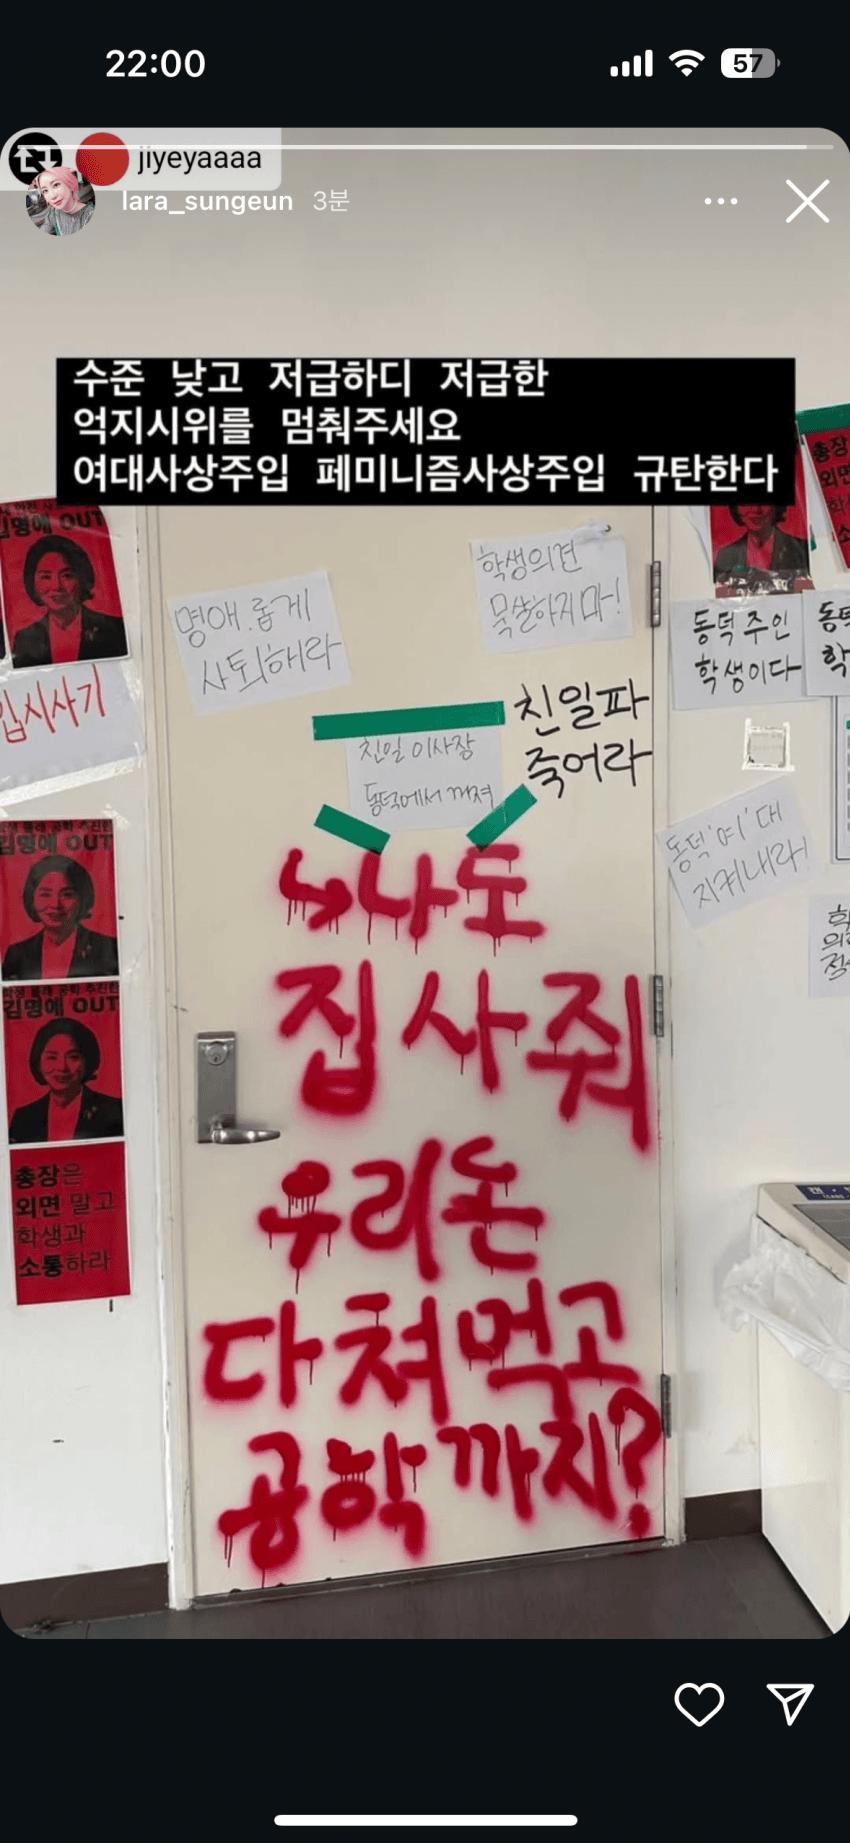 22:00
57
jiyeyaaaa
lara_sungeun 3분
수준 낮고 저급하디 저급한
억지시위를 멈춰주세요
여대사상주입 페미니즘사상주입 규탄한다
김명애 OUT
입시사기
김명애 OUT
김명애 OUT
총장은
외면 말고
학생과
소통하라
명애롭게
사퇴해라
학생의견
묵살하지마!
친일 이사장
동덕에서 꺼져
친일파
죽어라
↳나도
집 사줘
우리돈
다 쳐먹고
공학까지?
총장
외면
동덕 주인
학생이다
동덕
학
동덕'여'대
지켜내라!